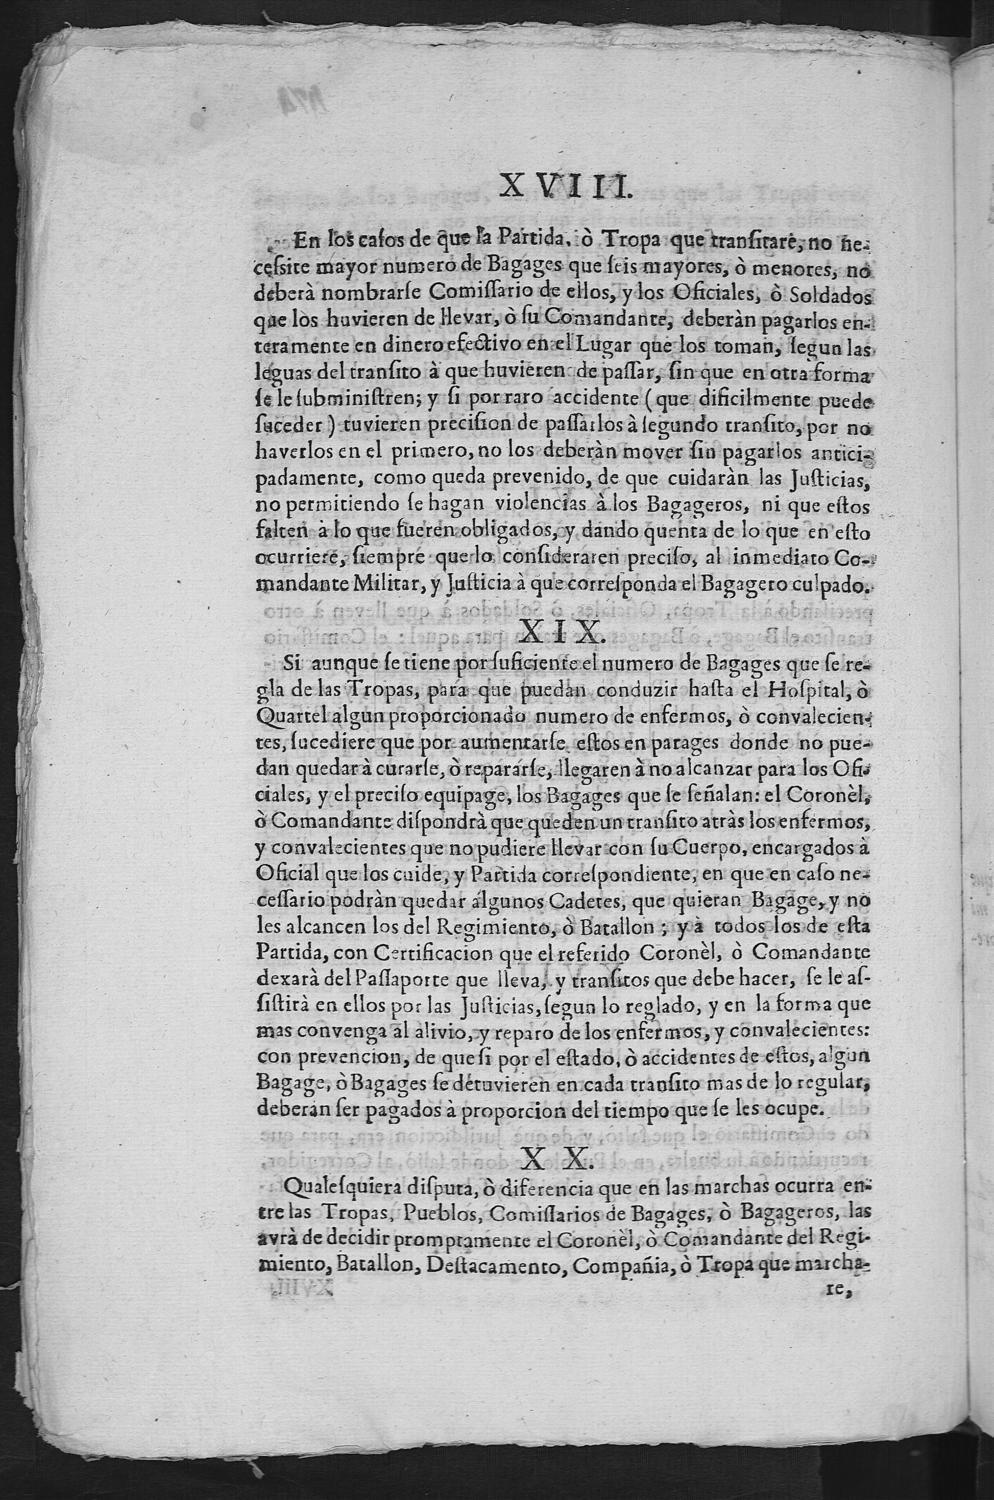 XVIII.
En los caſos de que la Partida, ò Tropa que tranſitare, no ne-
ceſsite mayor numero de Bagages que ſeis mayores, ò menores, no
deberà nombrarſe Comiſſario de ellos, y los Oficiales, ò Soldados
que los huvieren de llevar, ò ſu Comandante, deberàn pagarlos en-
teramente en dinero efectivo en el Lugar que los toman, ſegun las
leguas del tranſito à que huvieren de paſſar, ſin que en otra forma
ſe le ſubminiſtren; y ſi por raro accidente (que dificilmente puede
ſuceder) tuvieren preciſion de paſſarlos à ſegundo tranſito, por no
haverlos en el primero, no los deberàn mover ſin pagarlos antici-
padamente, como queda prevenido, de que cuidaràn las Juſticias,
no permitiendo ſe hagan violencias à los Bagageros, ni que eſtos
falten à lo que fueren obligados, y dando quenta de lo que en eſto
ocurriere, ſiempre que lo conſideraren preciſo, al inmediato Co-
mandante Militar, y Juſticia à que correſponda el Bagagero culpado.
XIX.
Si aunque ſe tiene por ſuficiente el numero de Bagages que ſe re-
gla de las Tropas, para que puedan conduzir haſta el Hoſpital, ò
Quartel algun proporcionado numero de enfermos, ò convalecien-
tes, ſucediere que por aumentarſe eſtos en parages donde no pue-
dan quedar à curarſe, ò repararſe, llegaren à no alcanzar para los Ofi-
ciales, y el preciſo equipage, los Bagages que ſe ſeñalan: el Coronèl,
ò Comandante diſpondrà que queden un tranſito atràs los enfermos,
y convalecientes que no pudiere llevar con ſu Cuerpo, encargados à
Oficial que los cuide, y Partida correſpondiente, en que en caſo ne-
ceſſario podràn quedar algunos Cadetes, que quieran Bagage, y no
les alcancen los del Regimiento, ò Batallon; y à todos los de eſta
Partida, con Certificacion que el referido Coronèl, ò Comandante
dexarà del Paſſaporte que lleva, y tranſitos que debe hacer, ſe le aſ-
ſiſtirà en ellos por las Juſticias, ſegun lo reglado, y en la forma que
mas convenga al alivio, y reparo de los enfermos, y convalecientes:
con prevencion, de que ſi por el eſtado, ò accidentes de eſtos, algun
Bagage, ò Bagages ſe detuvieren en cada tranſito mas de lo regular,
deberàn ſer pagados à proporcion del tiempo que ſe les ocupe.
XX.
Qualeſquiera diſputa, ò diferencia que en las marchas ocurra en-
tre las Tropas, Pueblos, Comiſſarios de Bagages, ò Bagageros, las
avrà de decidir promptamente el Coronèl, ò Comandante del Regi-
miento, Batallon, Deſtacamento, Compañia, ò Tropa que marcha-
re,